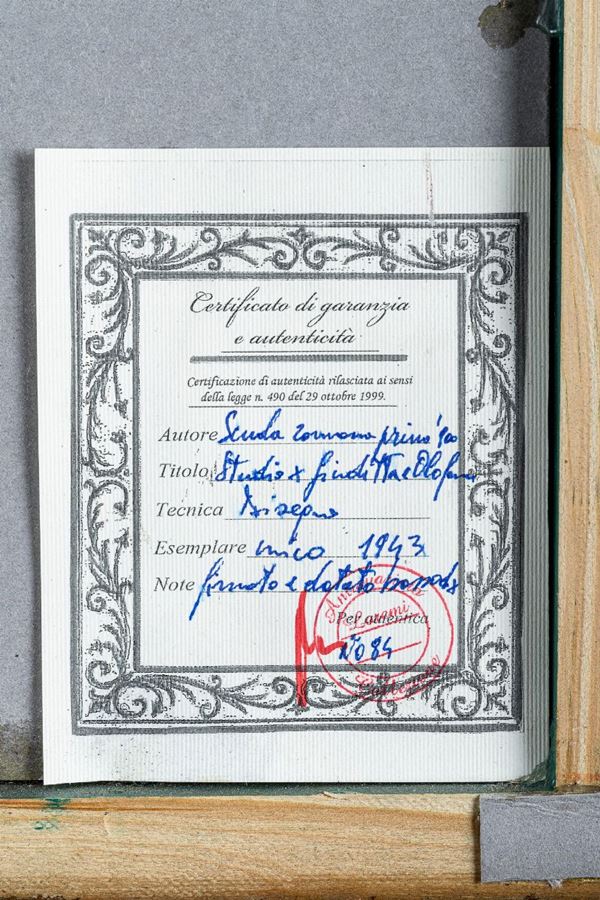 Certificato di garanzia
e autenticità
Certificazione di autenticità rilasciata ai sensi
della legge n. 490 del 29 ottobre 1999.
Autore Scuola romana primo '900
Titolo Studio x Giuditta e Oloferne
Tecnica Disegno
Esemplare unico 1943
Note firmato e datato basso dx
Per autentica
N° 084